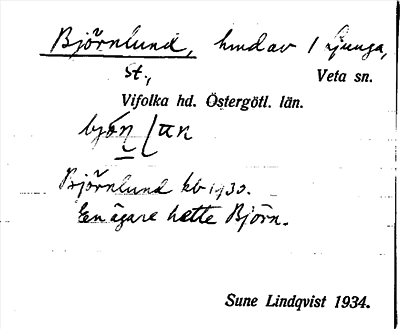 Björnlund, hmd av 1 Ljunga,
st., Veta sn.
Vifolka hd. Östergötl. län.
Björnlund kb 1930.
En ägare hette Björn.
Sune Lindqvist 1934.